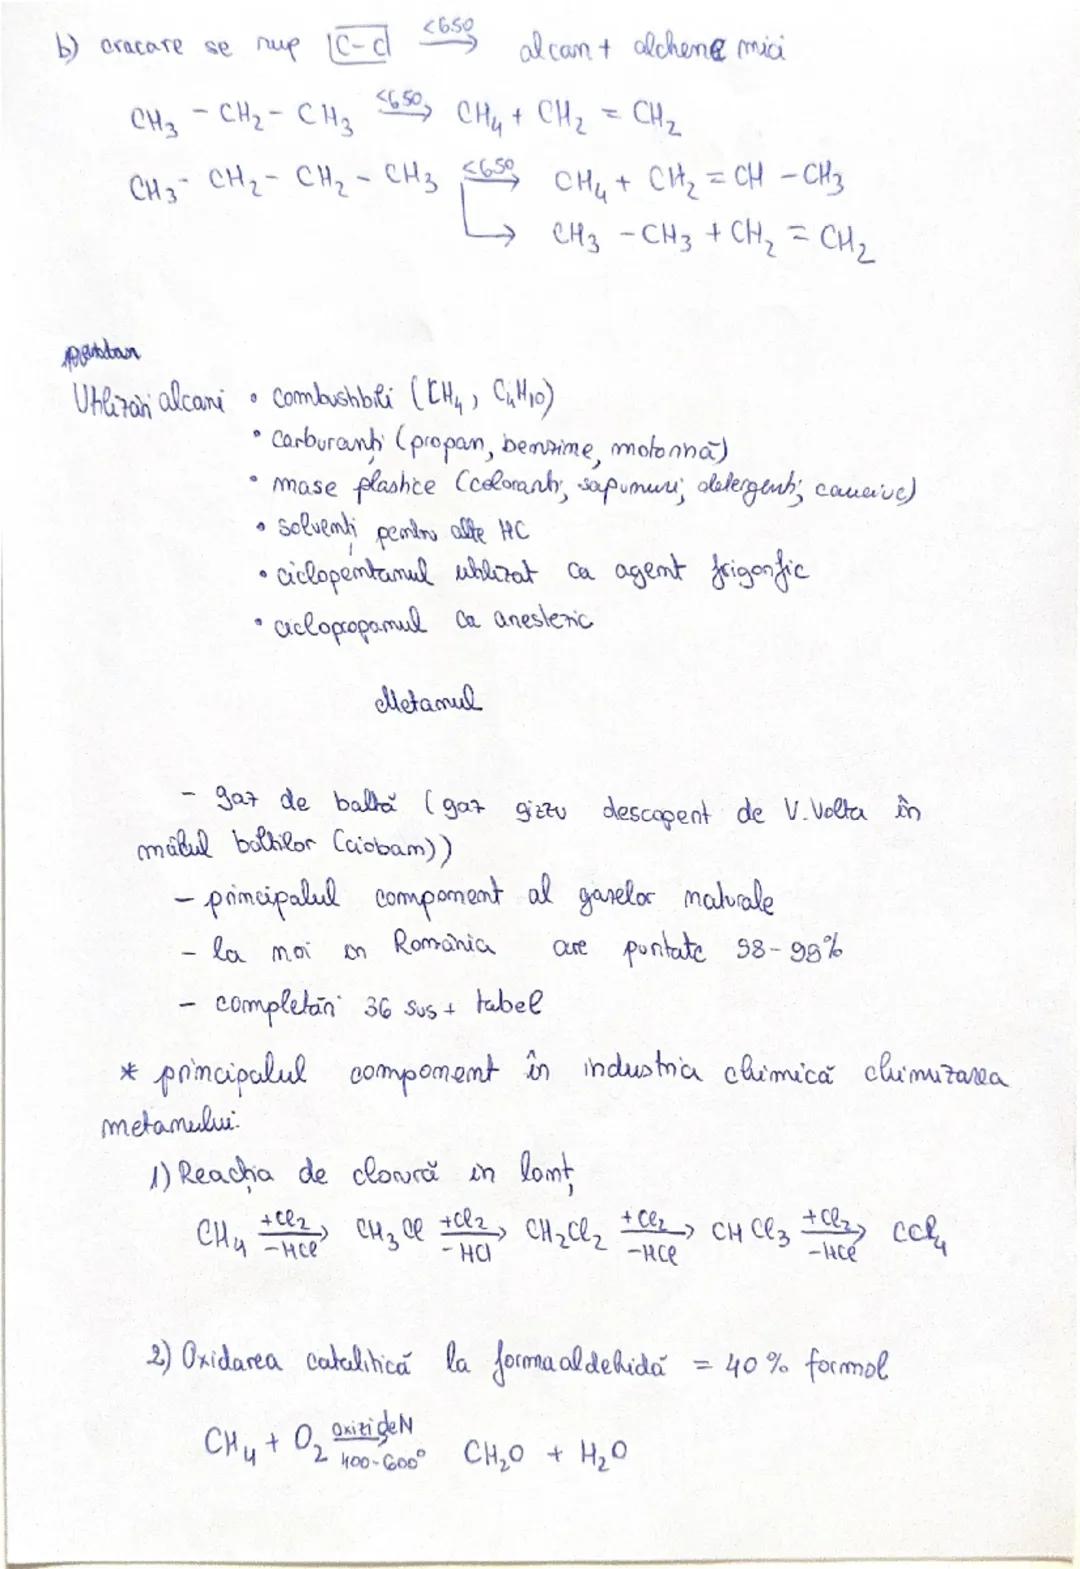 b) cracare se rup C-C <650→ alcan + alchene mici
CH₃ - CH₂ - CH₃ <650→ CH₄ + CH₂ = CH₂
CH₃ - CH₂ - CH₂ - CH₃ <650→ CH₄ + CH₂ = CH - CH₃
→ CH₃ - CH₃ + CH₂ = CH₂
Utilizări alcani • combustibili (CH₄, C₄H₁₀)
• carburanți (propan, benzine, motorină)
• mase plastice (coloranți, săpunuri, detergenți, cauciuc)
• solvenți pentru alte HC
• ciclopentanul utilizat ca agent frigorific
• ciclopropanul ca anestezic
Metanul
- gaz de baltă (gaz gizzu descoperit de V. Volta în
mâlul bălților (ciobam))
- principalul component al gazelor naturale
- la noi în România are puritate 98-99%
- completări 36 sus + tabel
* principalul component în industria chimică chimizarea
metanului.
1) Reacția de clorură în lanț
CH₄ +Cl₂/-HCl→ CH₃Cl +Cl₂/-HCl→ CH₂Cl₂ +Cl₂/-HCl→ CHCl₃ +Cl₂/-HCl→ CCl₄
2) Oxidarea catalitică la formaaldehidă = 40% formol
CH₄ + O₂ oxizi de N/400-600°→ CH₂O + H₂O